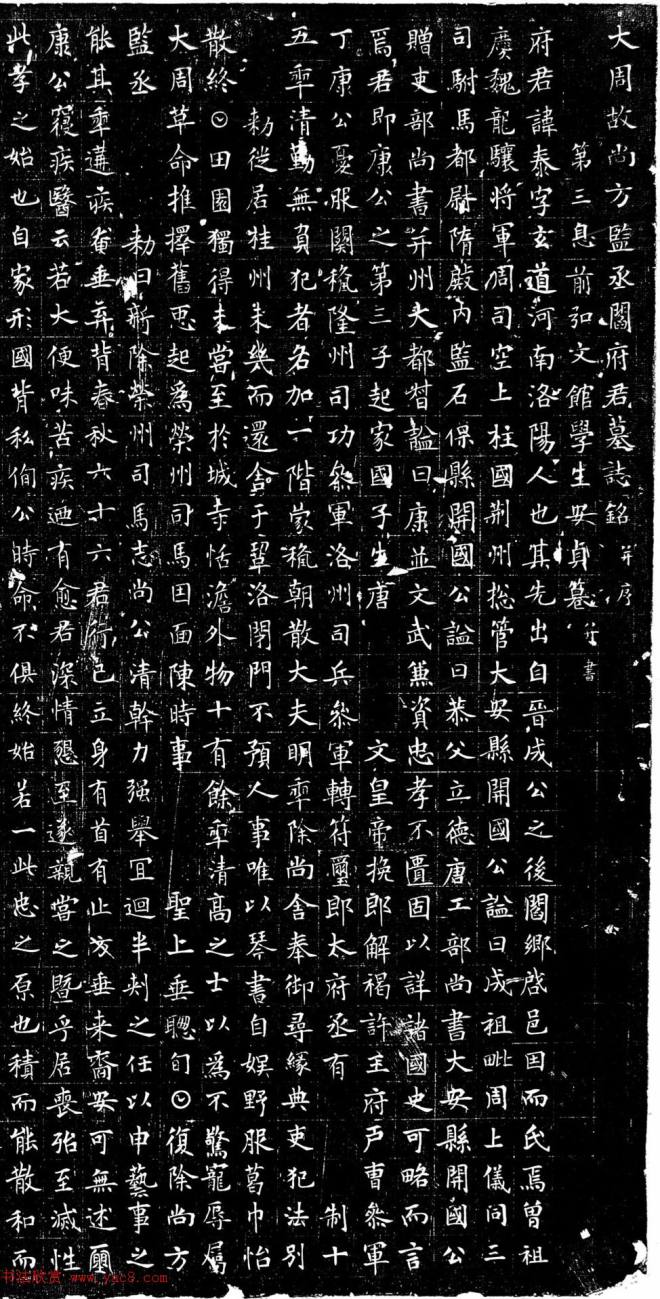 大周故尚方監丞閻府君墓誌銘并序
第三息前弘文館學生安貞篹并書
府君諱泰字玄道河南洛陽人也其先出自晉成公之後閻鄉啓邑因而氏焉曾祖
慶魏龍驤將軍周司空上柱國荊州捴管大安縣開國公謚曰成祖毗周上儀同三
司駙馬都尉隋殿內監石保縣開國公謚曰恭父立德唐工部尚書大安縣開國公
贈吏部尚書并州大都督謚曰康並文武兼資忠孝不匱固以詳諸國史可略而言
焉君即康公之第三子起家國子生唐 文皇帝挽郎解褐許王府戶曹叅軍
丁康公憂服闋授隆州司功叅軍洛州司兵叅軍轉符璽郎太府丞有 制十
五𠡦清勤無負犯者名加一階蒙授朝散大夫明𠡦除尚舍奉御尋緣典吏犯法別
勑徙居桂州未幾而還舍于鞏洛閉門不預人事唯以琴書自娛野服葛巾怡
散終𡆠田園獨得未嘗至於城寺恬澹外物十有餘𠡦清高之士以為不驚寵辱屬
大周革命推擇舊𢘑起為榮州司馬因面陳時事 聖上垂聦旬𡆠復除尚方
監丞 勑曰新除榮州司馬志尚公清幹力强舉冝迴半刾之任以申藝事之
能其𠡦遘疾奄垂弃背春秋六十六君行己立身有首有止垂来裔安可無述爾
康公寑疾醫云若大便味苦疾廼有愈君深情懇至遂親嘗之暨乎居喪殆至滅性
此孝之始也自家形國背私徇公時命不俱終始若一此忠之原也積而能散和而
书法欣赏 www.yac8.com